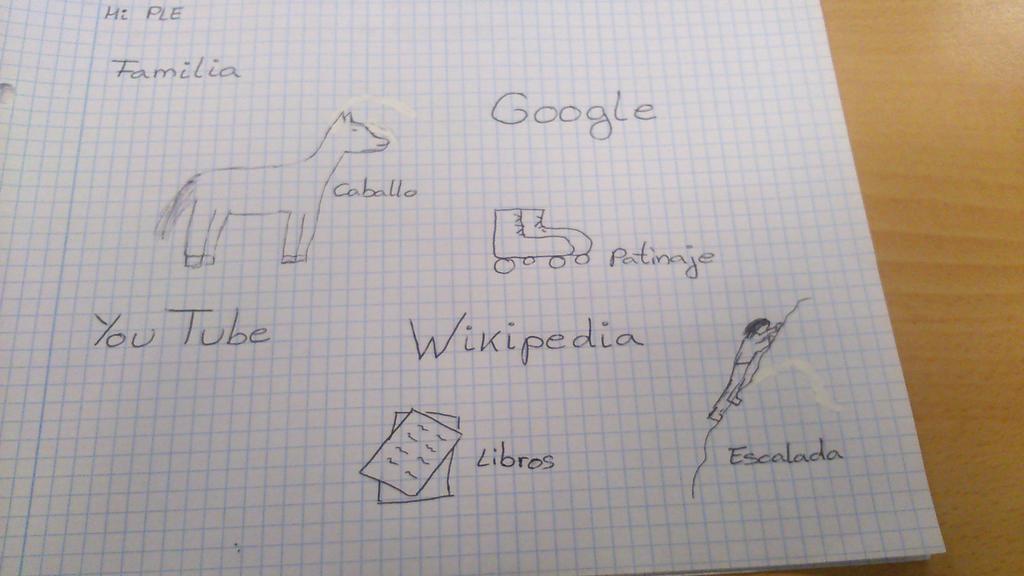 Mi PLE
Familia
Google
Caballo
Patinaje
YouTube
Wikipedia
Libros
Escalada